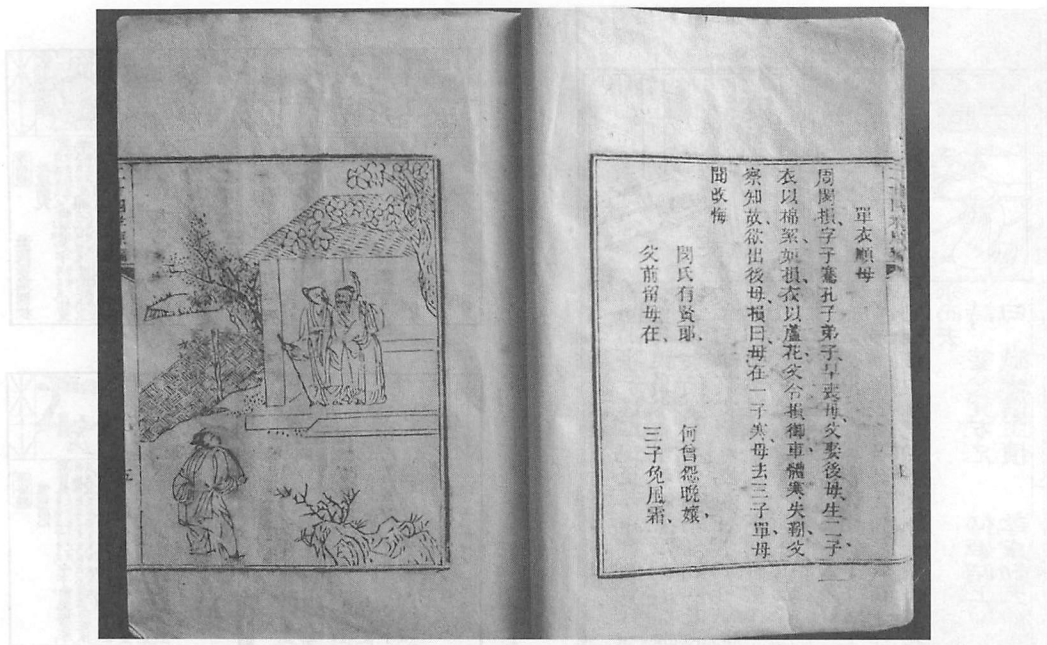 單衣順母
周閔損、字子騫孔子弟子、早喪母、父娶後母、生二子、
衣以棉絮、妒損、衣以蘆花、父令損御車、體寒、失靷、父
察知故、欲出後母、損曰、母在一子寒、母去三子單、母
聞改悔
閔氏有賢郎、何曾怨晚孃、
父前留母在、三子免風霜、
五